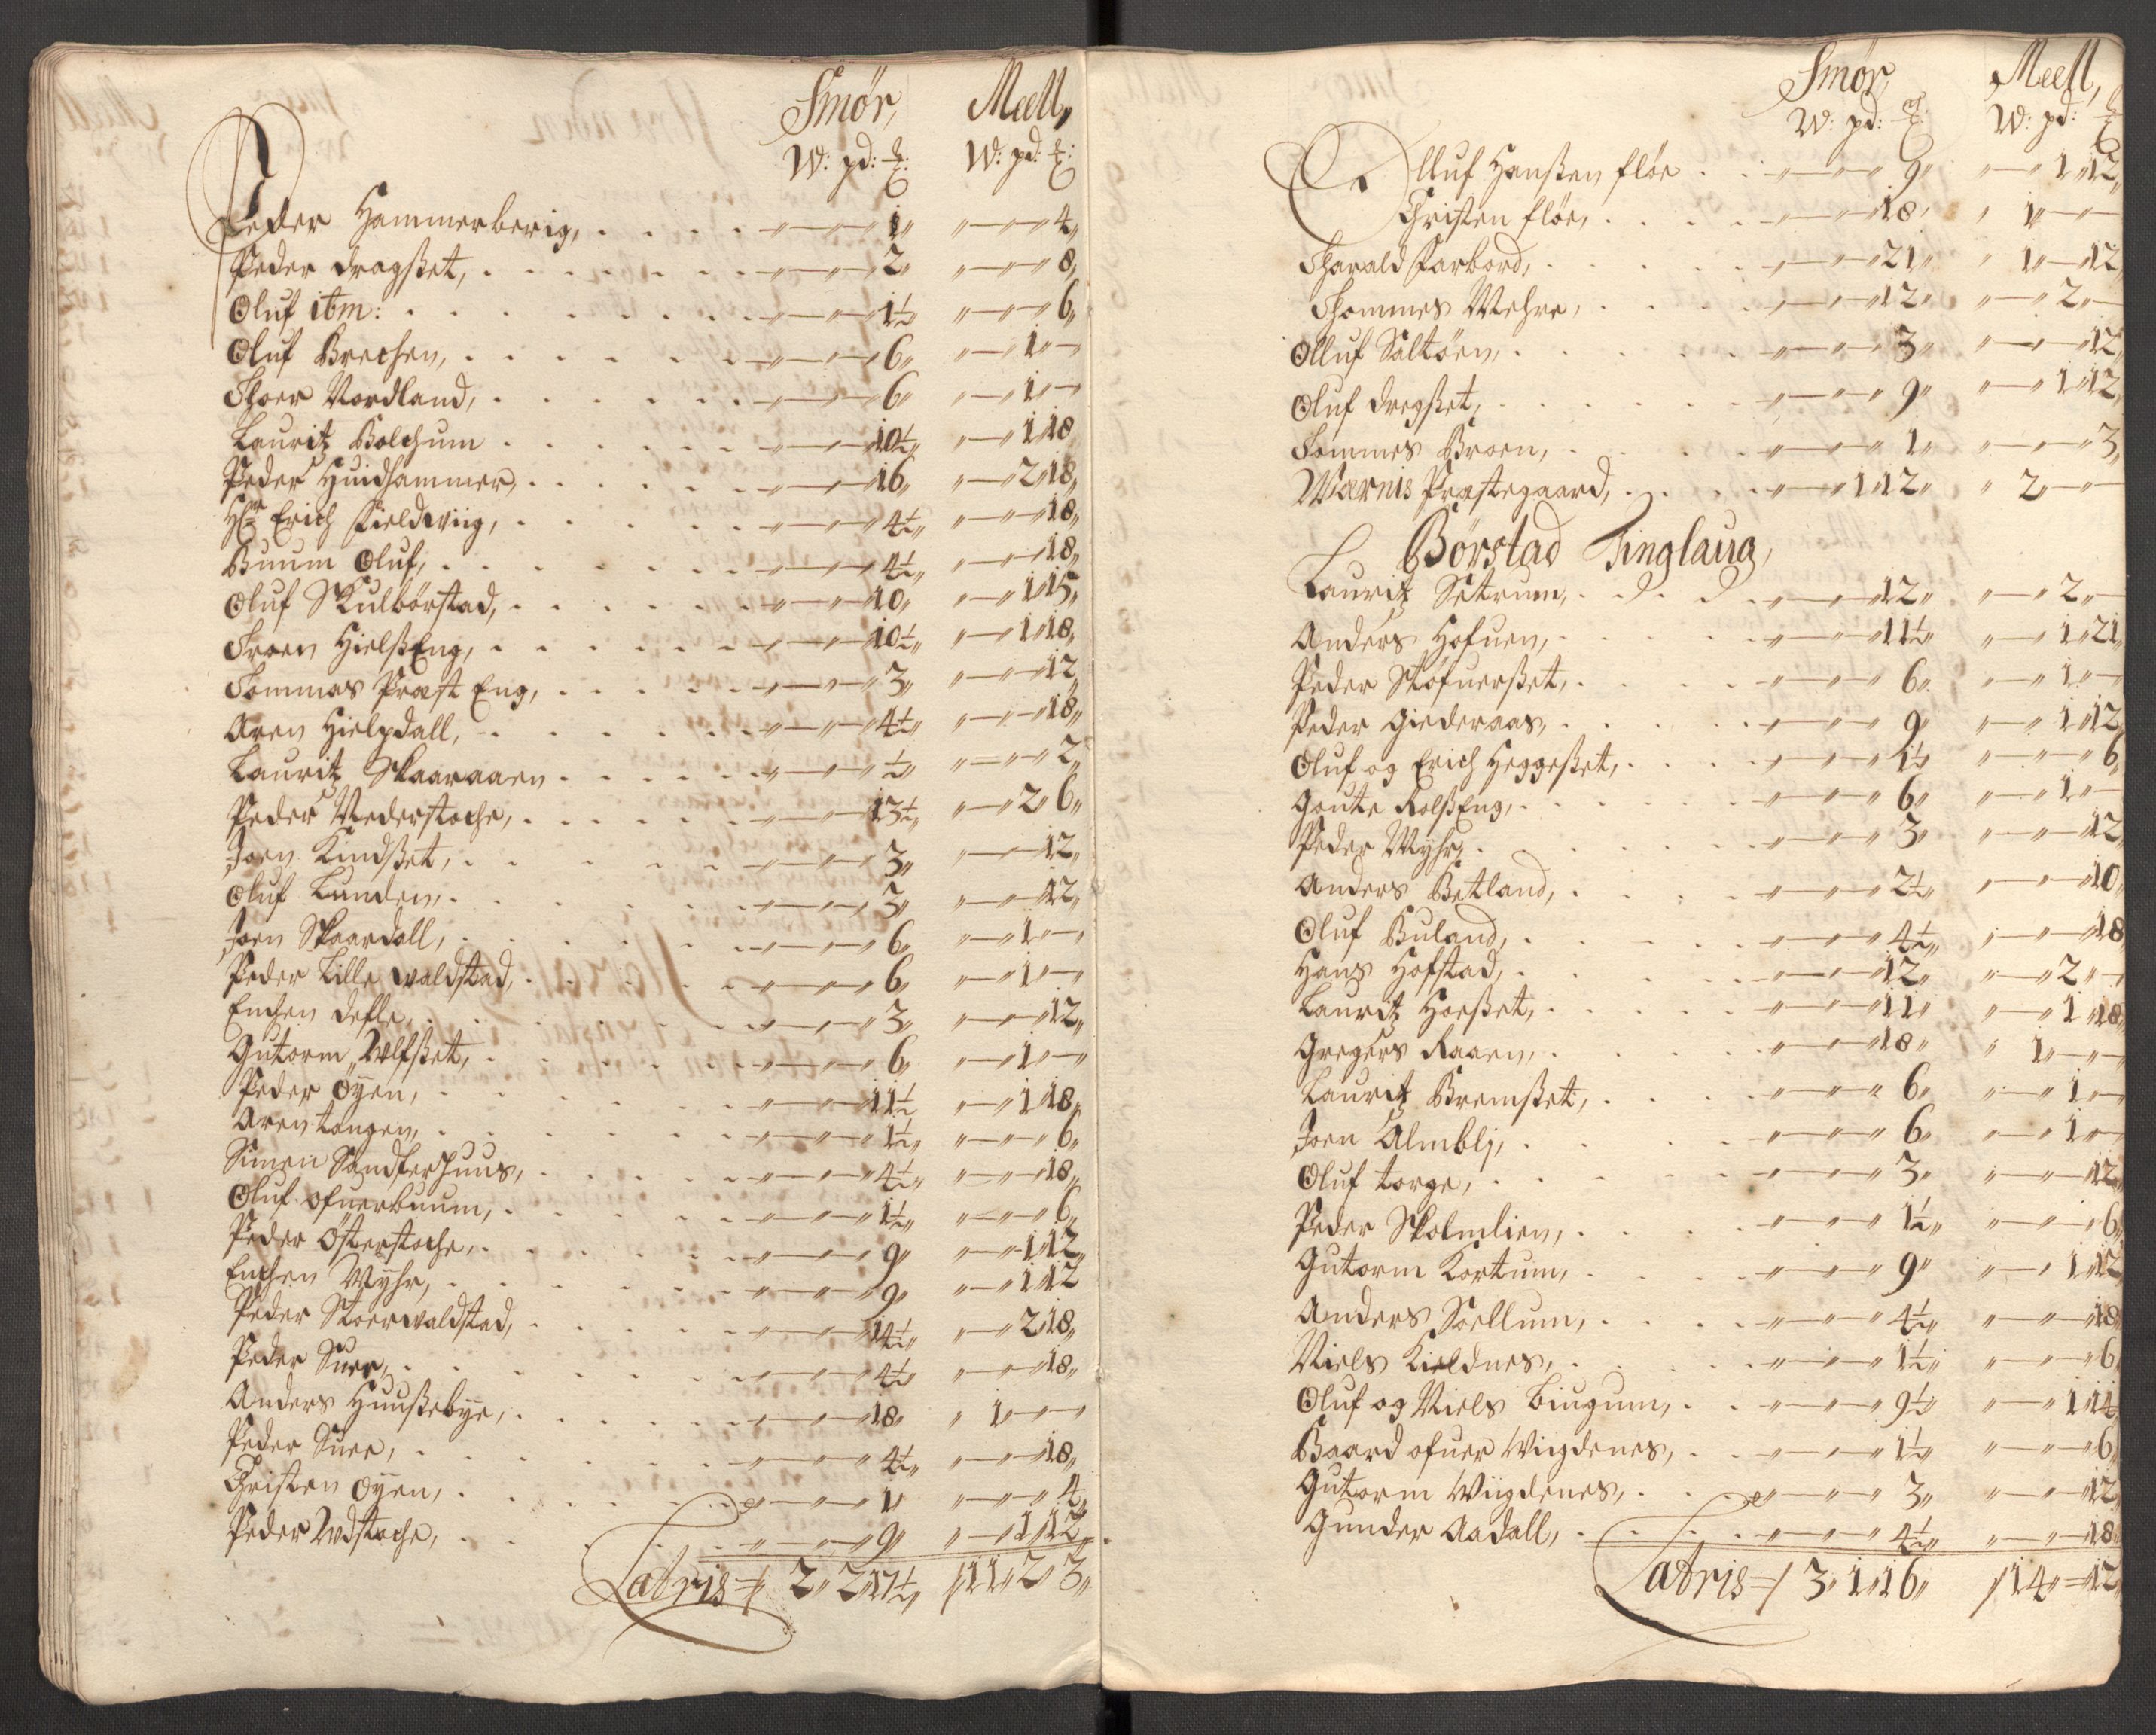 Smør, Meell,
W: pd: ℔: W: pd: ℔:
Peder Hammerberig, . . . . „—„—„ 1„ „—„—„ 4„
Peder dragßet, . . . . „—„—„ 2„ „—„—„ 8„
Oluf ibm: . . . . „—„—„ 1½„ „—„—„ 6„
Oluf Brechen, . . . . „—„—„ 6„ „—„ 1„—
Thoer Nordland, . . . . „—„—„ 6„ „—„ 1„—
Lauritz Bolchum . . . . „—„—„ 10½„ „—„ 1„18
Peder Huidhammer, . . . . „—„—„ 16„ „—„ 2„18„
Hr Erich Fieldwiig, . . . . „—„—„ 4½„ „—„—„ 18„
Buum Oluf, . . . . „—„—„ 4½„ „—„—„ 18„
Oluf Skulbörstad, . . . . „—„—„ 10„ „—„ 1„15„
Troen HielßEng, . . . . „—„—„ 10½„ „—„ 1„18„
Tommas Præst Eng, . . . . „—„—„ 3„ „—„—„ 12„
Aren Hielpdall, . . . . „—„—„ 4½„ „—„—„ 18„
Lauritz Skaaraaen . . . . „—„—„ ½„ „—„—„ 2„
Peder Nederstoche, . . . . „—„—„ 13½„ „—„ 2„ 6„
Joen Kindßet, . . . . „—„—„ 3„ „—„—„ 12„
Oluf Lunden, . . . . „—„—„ 3„ „—„—„ 12„
Joen Skaardall, . . . . „—„—„ 6„ „—„ 1„—
Peder Lille waldstad, . . . . „—„—„ 6„ „—„ 1„—
Enchen defle, . . . . „—„—„ 3„ „—„—„ 12„
Gutorm Wlfßet, . . . . „—„—„ 6„ „—„ 1„—
Peder Öyen, . . . . „—„—„ 11½ „—„ 1„18„
Aren tangen, . . . . „—„—„ 1½„ „—„—„ 6„
Simen Sandferhuus, . . . . „—„—„ 4½„ „—„—„ 18„
Oluf ofuerbuum, . . . . „—„—„ 1½„ „—„—„ 6„
Peder Österstoche, . . . . „—„—„ 9„ „—„ 1„12„
Enchen Myhr, . . . . „—„—„ 9„ „—„ 1„12
Peder Stoerwaldstad, . . . . „—„—„ 14½„ „—„ 2„18„
Peder Suer, . . . . „—„—„ 4½„ „—„—„ 18„
Anders Huußebye, . . . . „—„—„ 18„ „ 1„—„—
Peder Suee, . . . . „—„—„ 4½„ „—„—„ 18„
Christen Öyen, . . . . „—„—„ 1„ „—„—„ 4„
Peder Udstoche, . . . . „—„—„ 9„ „—„ 1„12„
Latris 2„ 2„17½„ 11„ 2„ 3„
Smør, Meell,
W: pd: ℔: W: pd: ℔
Olluf Hanßen flöe . . „—„—„ 9„ „—„ 1„12„
Christen flöe, . . . . „—„—„ 18„ „ 1„—„—
Harald Farbord, . . . . „—„—„ 21„ „ 1„—„12„
Thommes Mehre, . . . . „—„—„ 12„ „—„ 2„—
Olluf Saltöen, . . . . „—„—„ 3„ „—„—„ 12„
Oluf dregßet, . . . . „—„—„ 9„ „—„ 1„12„
Tommes Broen, . . . . „—„—„ 1„ „—„—„ 3„
Wærnis Præstegaard, . . . . „—„ 1„12„ „ 2„—„—
Börstad Tinglaug,
Lauritz Setrum, . . . . „—„—„ 12„ „—„ 2„—
Anders Hofuen, . . . . „—„—„ 11½„ „—„ 1„21„
Peder Stöfuerßet, . . . . „—„—„ 6„ „—„ 1„—
Peder Giederaas, . . . . „—„—„ 9„ „—„ 1„12„
Oluf og Erich Heggeßet, . . . . „—„—„ 1½ „—„—„ 6„
Goute RolßEng, . . . . „—„—„ 6„ „—„ 1„—
Peder Myhr, . . . . „—„—„ 3„ „—„—„ 12„
Anders Betland, . . . . „—„—„ 2½„ „—„—„ 10„
Oluf Buland, . . . . „—„—„ 4½„ „—„—„ 18
Hans Hofstad, . . . . „—„—„ 12„ „—„ 2„—
Lauritz Horßet, . . . . „—„—„ 11„ „—„ 1„18„
Gregers Raaen, . . . . „—„—„ 18„ „ 1„—„—
Lauritz Bremßet, . . . . „—„—„ 6„ „—„ 1„—
Joen Almblj, . . . . „—„—„ 6„ „—„ 1„—
Oluf torge, . . . . „—„—„ 3„ „—„—„ 12„
Peder Skolmlien, . . . . „—„—„ 1½„ „—„—„ 6„
Gutorm Kortum, . . . . „—„—„ 9„ „—„ 1„12„
Anders Soellum, . . . . „—„—„ 4½„ „—„—„ 18„
Niels Kieldnes, . . . . „—„—„ 1½„ „—„—„ 6„
Oluf og Niels Biugum, . . „—„—„ 9½„ „—„ 1„14„
Baard ofuer Wiigdenes, . . „—„—„ 1½„ „—„—„ 6„
Gutorm Wiigdenes, . . . . „—„—„ 3„ „—„—„ 12„
Gunder Aadall, . . . . „—„—„ 4½„ „—„—„ 18„
Latris 3„ 1„16„ 14„=„12„